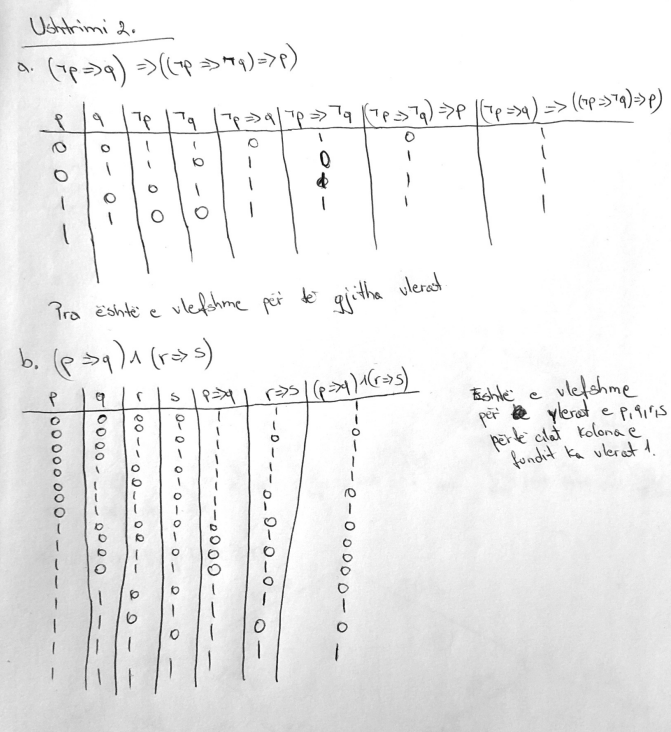 Ushtrimi 2.
a. (¬p⇒q) ⇒((¬p⇒¬q)⇒p)
p | q | ¬p | ¬q | ¬p⇒q | ¬p⇒¬q | (¬p⇒¬q)⇒p | (¬p⇒q)⇒((¬p⇒¬q)⇒p)
0 | 0 | 1 | 1 | 0 | 1 | 0 | 1
0 | 1 | 1 | 0 | 1 | 0 | 1 | 1
1 | 0 | 0 | 1 | 1 | 1 | 1 | 1
1 | 1 | 0 | 0 | 1 | 1 | 1 | 1
Pra është e vlefshme për të gjitha vlerat
b. (p⇒q)∧(r⇒s)
p | q | r | s | p⇒q | r⇒s | (p⇒q)∧(r⇒s)
0 | 0 | 0 | 0 | 1 | 1 | 1
0 | 0 | 0 | 1 | 1 | 1 | 1
0 | 0 | 1 | 0 | 1 | 0 | 0
0 | 0 | 1 | 1 | 1 | 1 | 1
0 | 1 | 0 | 0 | 1 | 1 | 1
0 | 1 | 0 | 1 | 1 | 1 | 1
0 | 1 | 1 | 0 | 1 | 0 | 0
0 | 1 | 1 | 1 | 1 | 1 | 1
1 | 0 | 0 | 0 | 0 | 0 | 0
1 | 0 | 0 | 1 | 0 | 1 | 0
1 | 0 | 1 | 0 | 0 | 0 | 0
1 | 0 | 1 | 1 | 0 | 1 | 0
1 | 1 | 0 | 0 | 1 | 0 | 0
1 | 1 | 0 | 1 | 1 | 1 | 1
1 | 1 | 1 | 0 | 1 | 0 | 0
1 | 1 | 1 | 1 | 1 | 1 | 1
Eshtë e vlefshme
për vlerat e p,q,r,s
për të cilat kolona e
fundit ka vlerat 1.